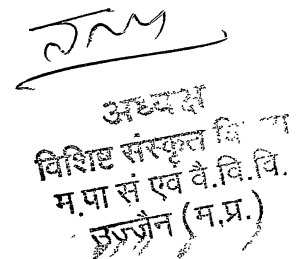 अध्यक्ष
विशिष्ट संस्कृत
म.पा सं एवं वै.वि.वि.
उज्जैन (म.प्र.)